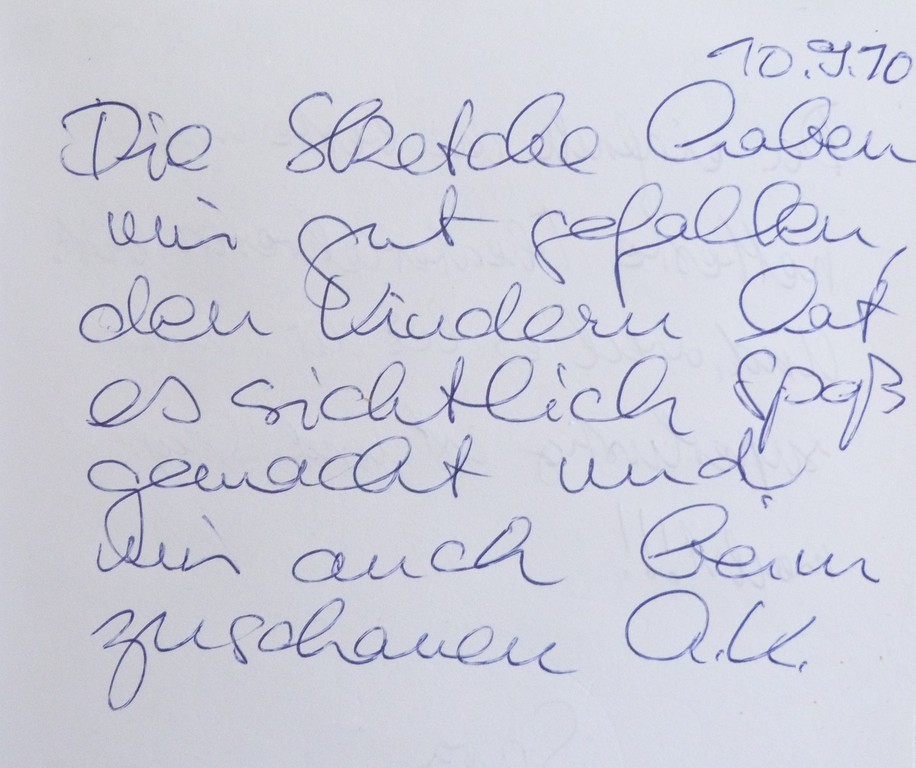 10.9.10
Die Sketche haben
mir gut gefallen,
den Kindern hat
es sichtlich Spaß
gemacht und
mir auch beim
zuschauen A.K.